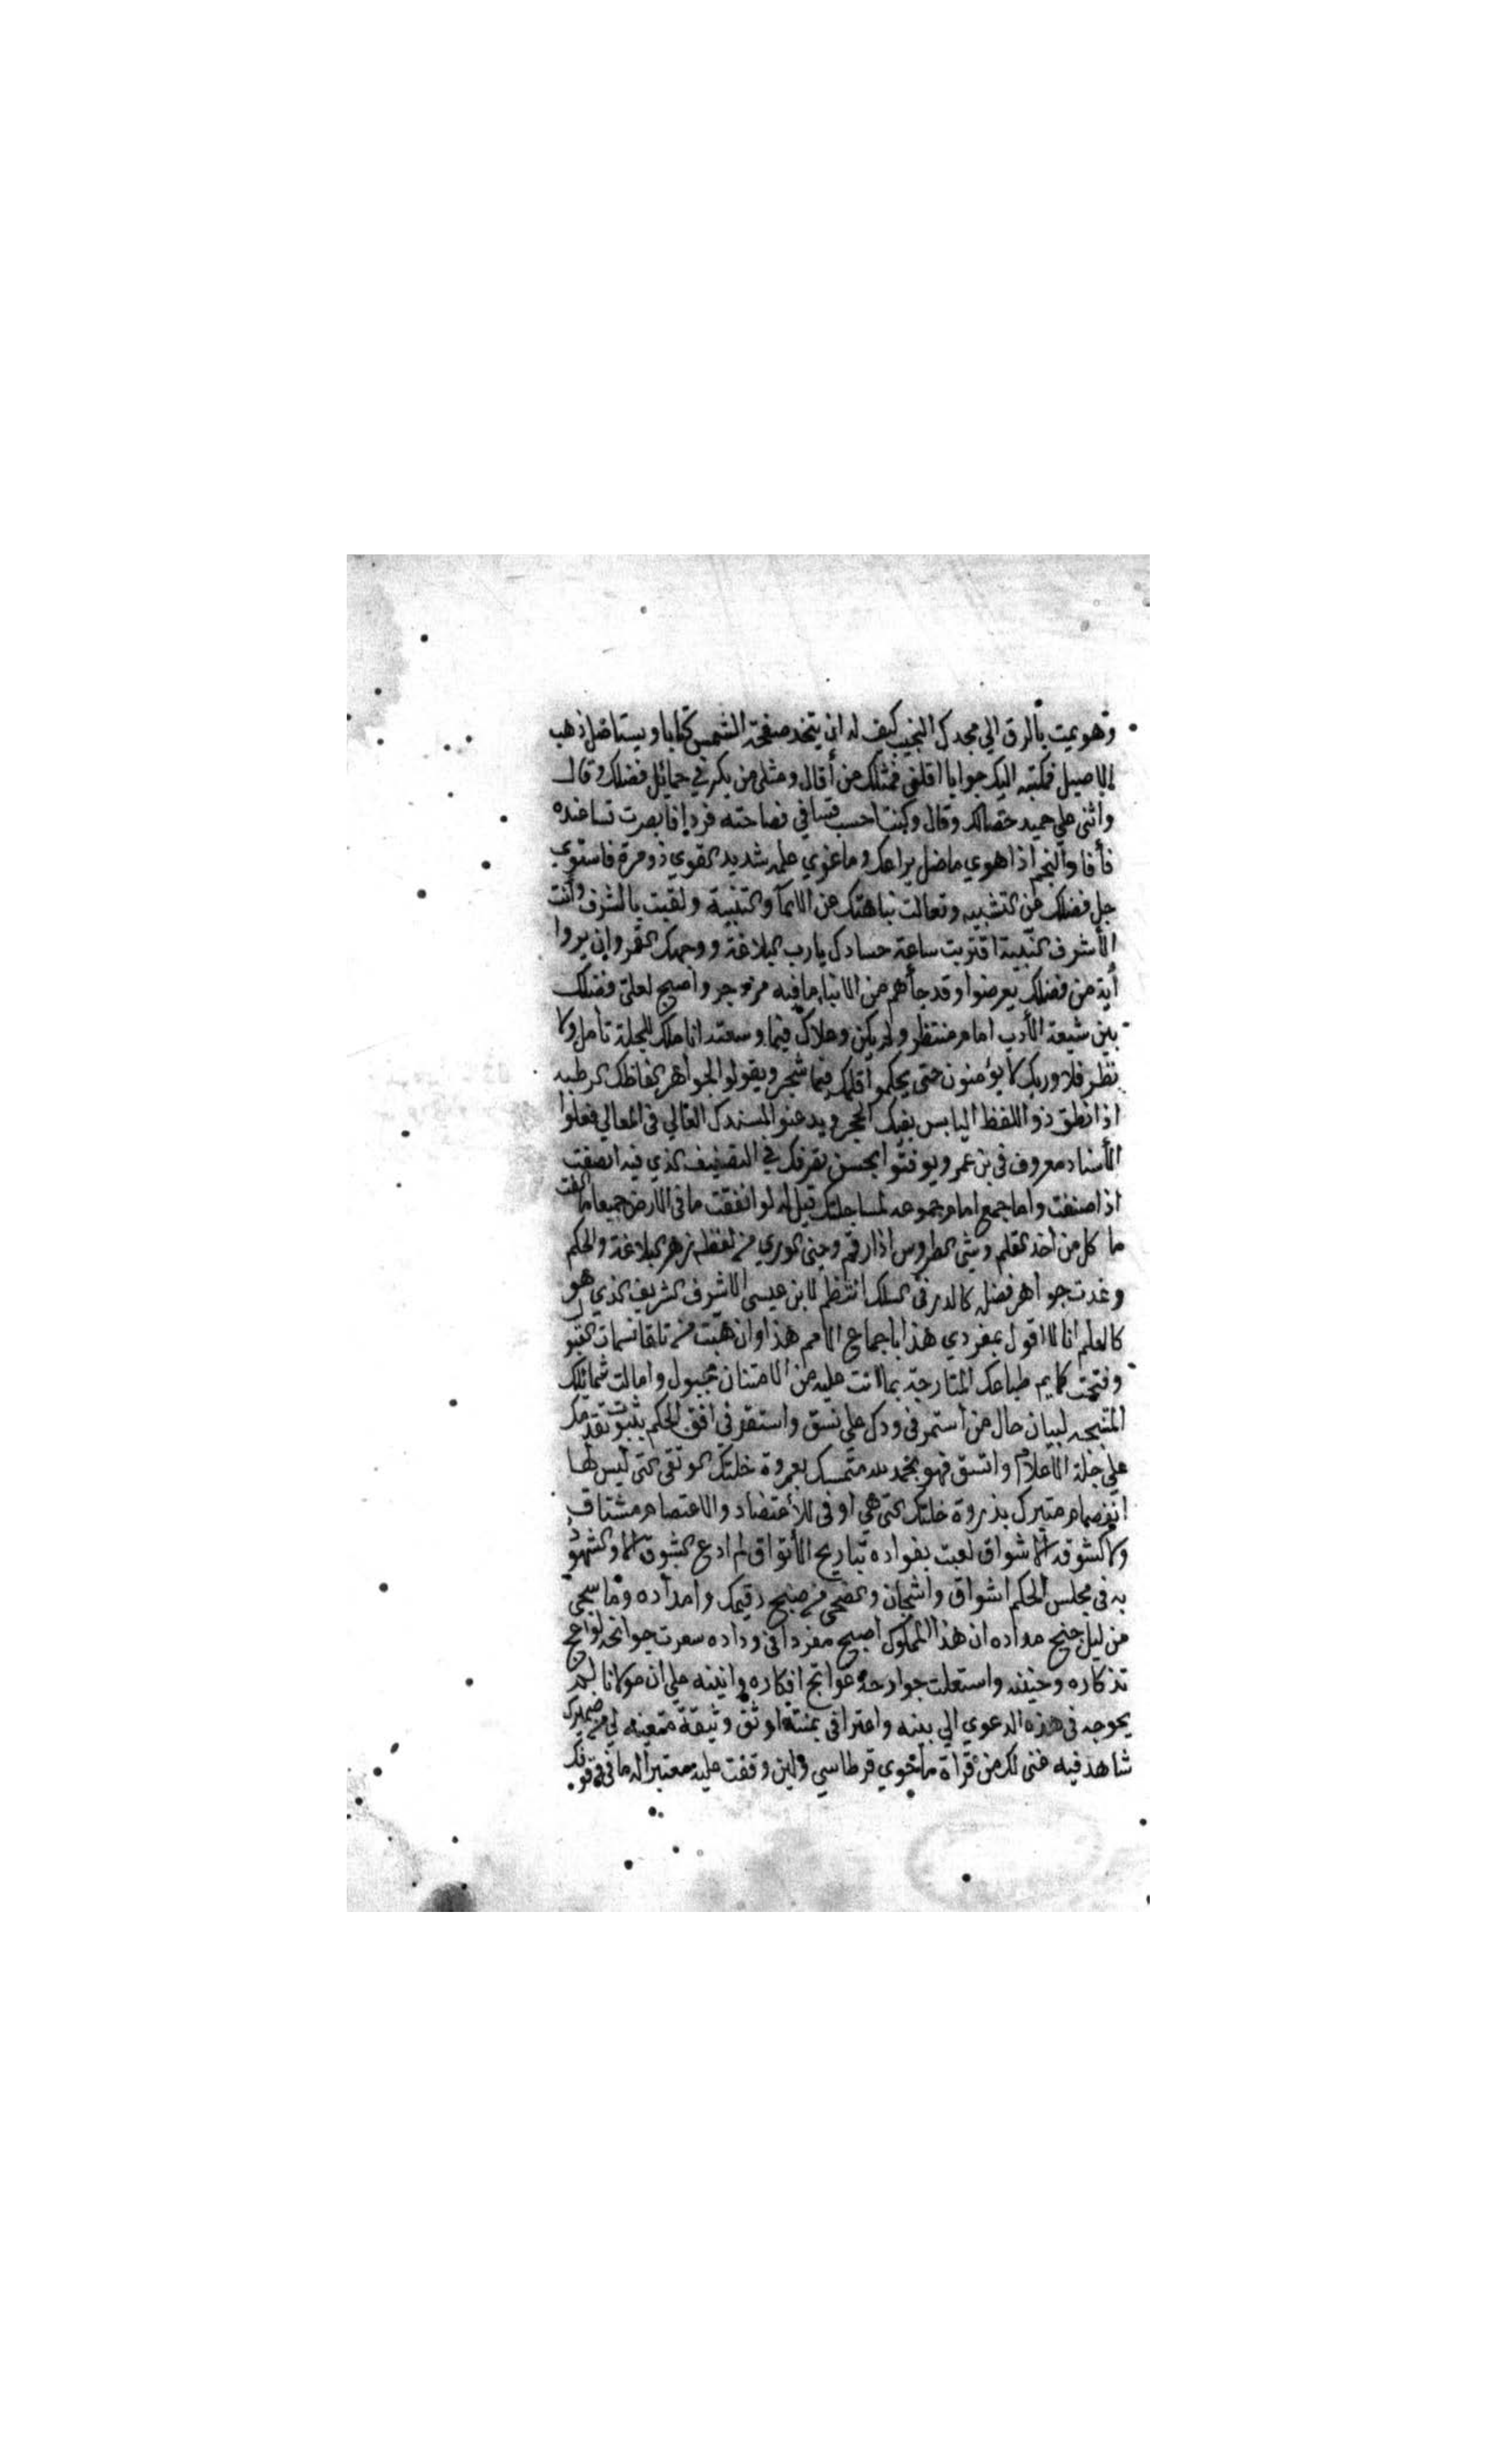 وهو يمت بالرق الي مجدك النجيب كيف له ان يتخذ صفحة الشمس كتابا ويستاصل ذهب
الاصيل فكتبه اليك جوابا اقلني فمثلك من أقال ومثلي من بكر في خمائل فضلك وقال
واثني علي حميد خصالك وقال وكنت احسب قسا في فصاحته فردا فابصرت قسا عنده
فأفا والنجم اذا هوي ما ضل يراعك وما غوي علمه شديد القوي ذو مرة فاستوي
جل فضلك عن التشبيه وتعالت نباهتك عن الايمآ والتنبية ولقبت بالشرف وأنت
الأشرف اقتربت ساعة حسادك يارب البلاغة ووجهك القمر وان يروا
أية من فضلك يعرضوا وقد جأهم من الانباء ما فيه مزدجر واصبح لعلي فضلك
بين شيعة الأدب امام منتظر ولم يكن وعلاك فيما وسعته اناملك للجلة تأمل ولا
نظر فلا وربك لا يؤمنون حتي يحكموا أقلامك فيما شجر ويقولوا لجواهر الفاظك الرطبه
اذا نطق ذو اللفظ اليابس بفيك الحجر ويدعنوا لمسندك العالي في المعالي فعلوا
الأسناد معروف في بن عمر ويوفتوا بحسن تصرفك في التصنيف الذي فيه انصفت
اذا صنفت واما جمع امام جموعه لمساجلتك قيل له لو انفقت ما في الارض جميعا ما الفت
ما كل من اخذ القلم وشي الطروس اذا رقم وجني الوري من لفظه زهر البلاغة والحكم
وغدت جواهر فضله كالدر في السلك انتظم لابن عيسي الاشرف الشريف الذي هو
كالعلم انا لا اقول بمفردي هذا باجماع الامم هذا وان هبت من تلقا نسمات القبول
وفتحت كمايم طباعك المتارجة بما انت عليه من الامتنان مجبول وامالت شمائلك
لبيان حال من استمر في ودك علي نسق واستقر في افق الحكم بثبوت تقدمك
علي جلة الاعلام واتسق فهو بحمد الله متمسك بعروة خلتك الوثقي التي ليس لها
انفصام متبرك بذروة خلتك التي هي اوفي للأعتضاد والاعتصام مشتاق
ولا كشوقه الاشواق لعبت بفواده تباريح الأتواق لم ادع الشوق الا والشهود
به في مجلس الحكم اشواق واشجان والضحي من صبح رقيمك وامداده وما سجي
من ليل جنح مداده ان هذا المملوك اصبح مفردا في وداده سعرت جوانحه لواعج
تذكاره وحنينه واستعلت جوارحه افكاره وانينه علي ان مولانا لم
يحوجه في هذه الدعوي الي بينه واعترافي بمنته اوثق وثيقة متعينه لي من ضميرك
شاهد فيه غني لك من قراة ما يحوي قرطاسي ولين وقفت عليه معتبرا له ما في وقوفك